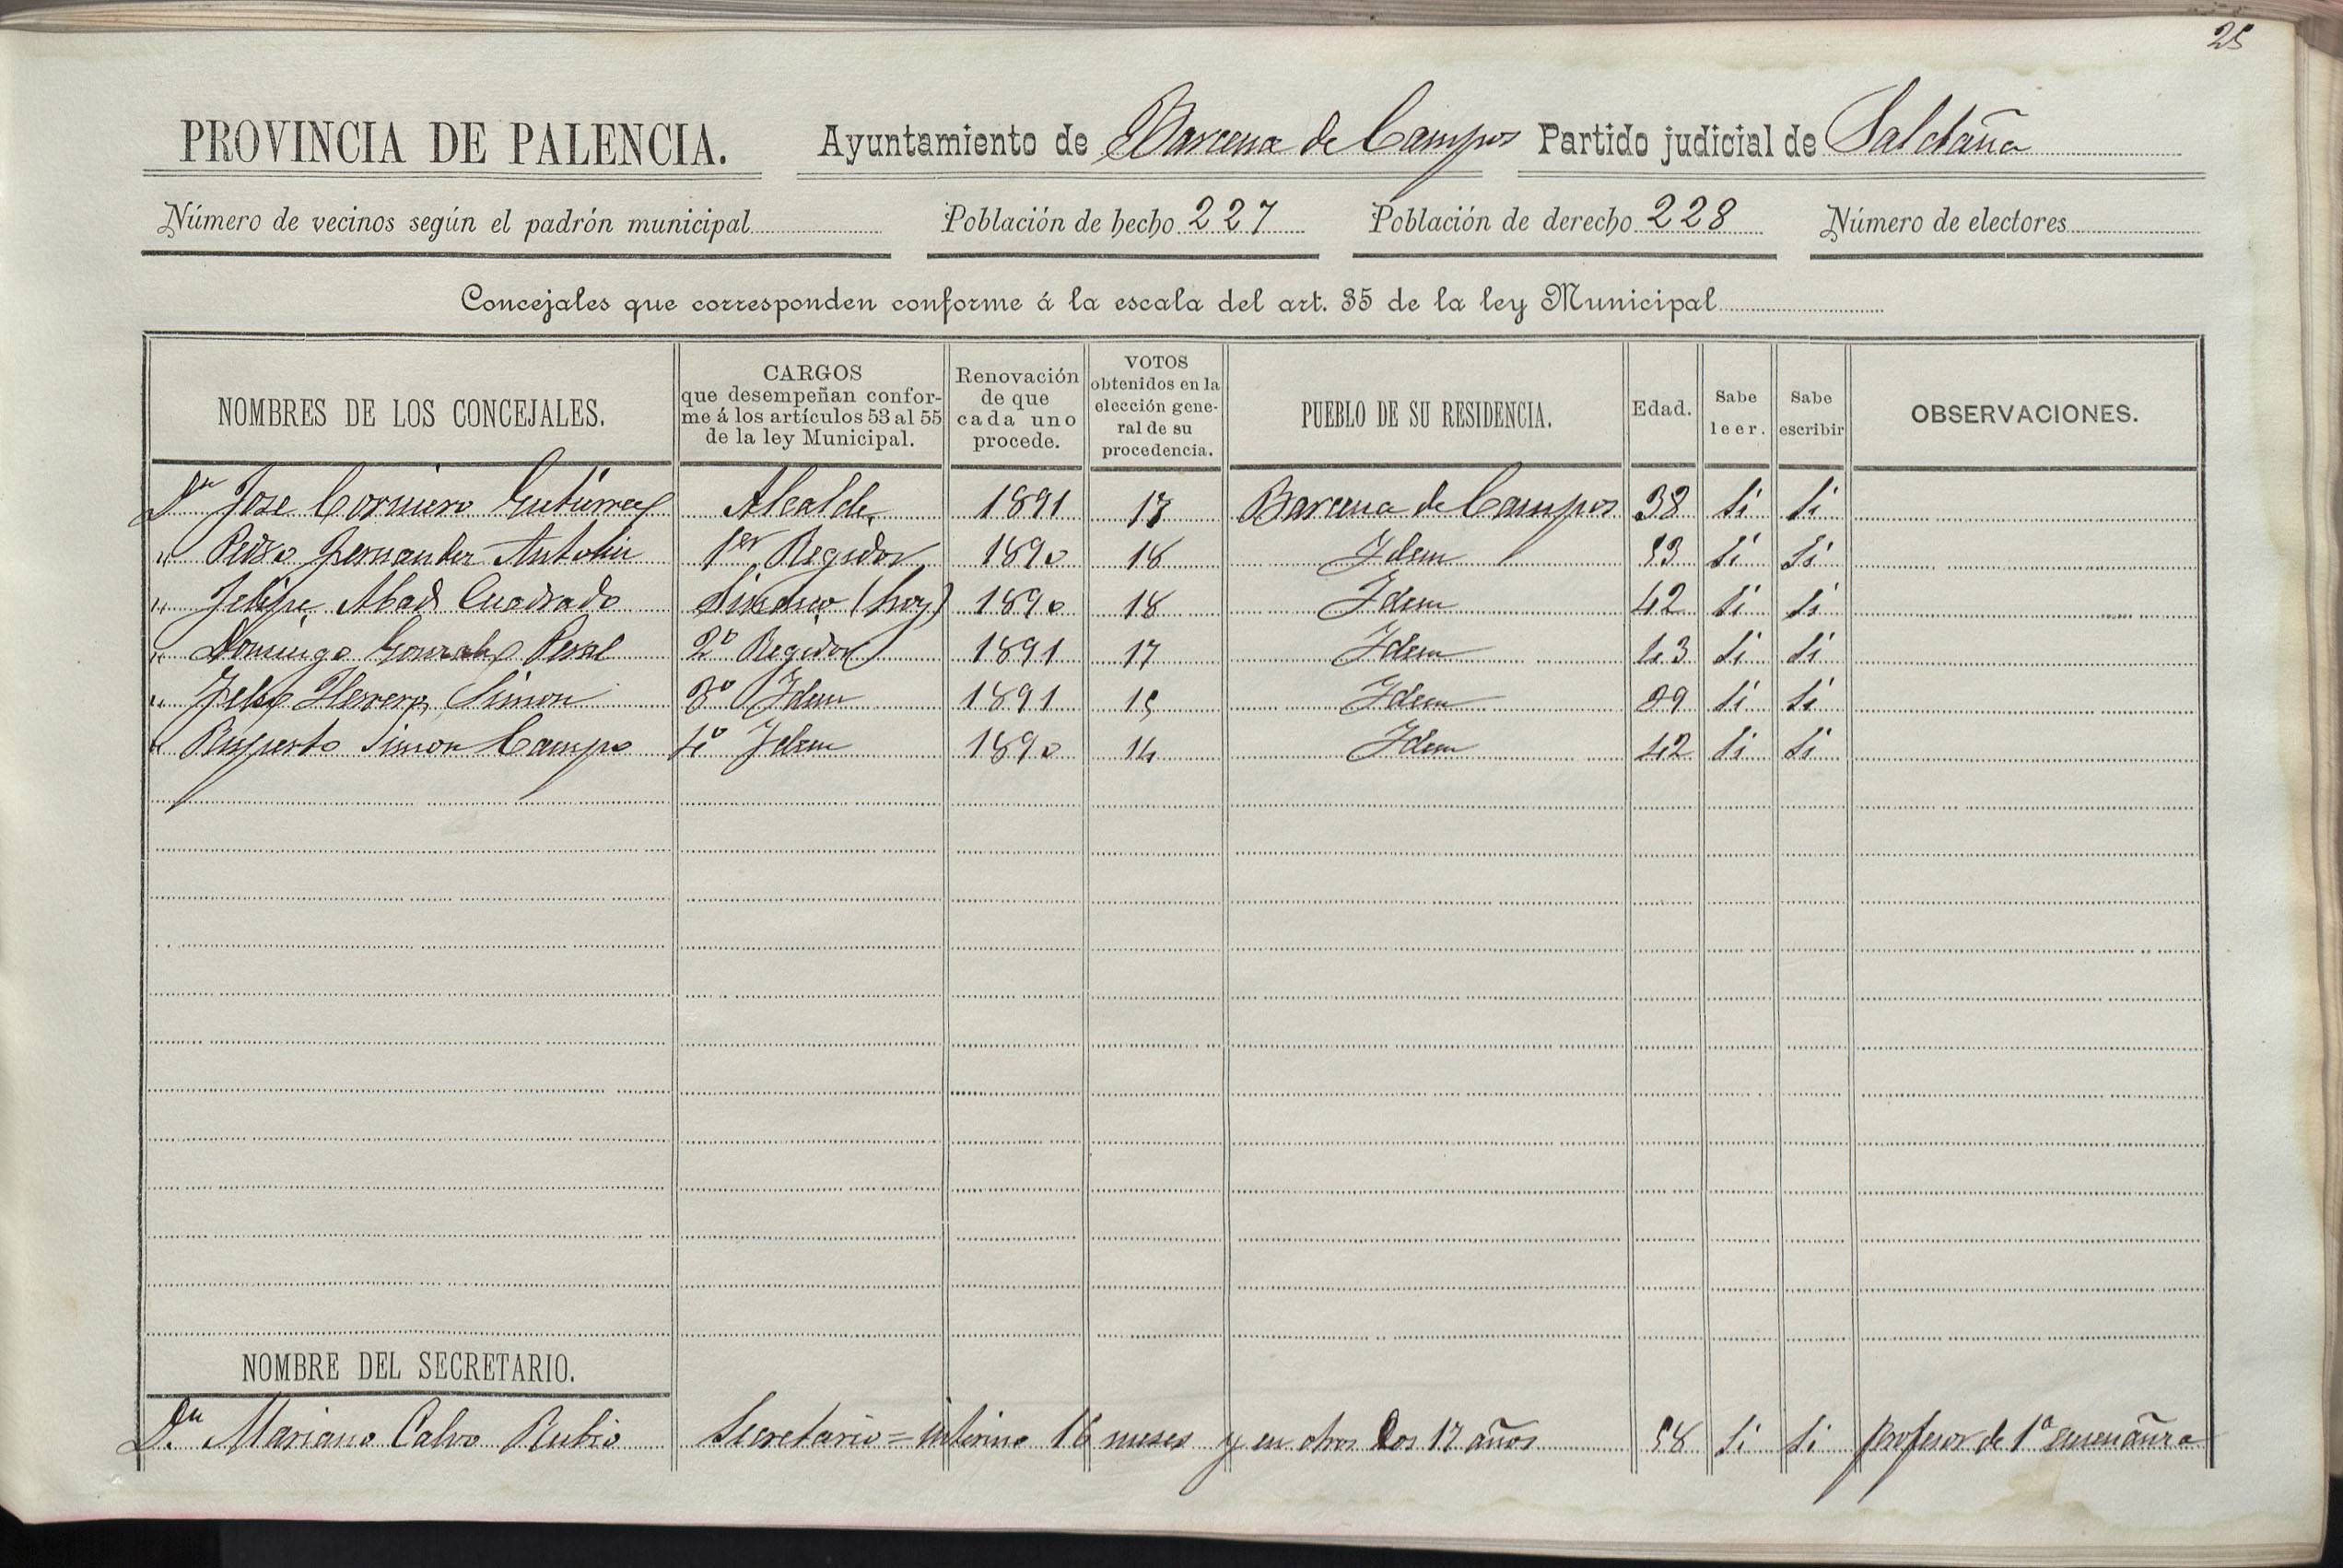 25
PROVINCIA DE PALENCIA. Ayuntamiento de Barcena de Campos Partido judicial de Saldaña
Número de vecinos según el padrón municipal Población de hecho 227 Población de derecho 228 Número de electores
Concejales que corresponden conforme á la escala del art. 35 de la ley Municipal
NOMBRES DE LOS CONCEJALES.
CARGOS
que desempeñan confor-
me á los artículos 53 al 55
de la ley Municipal.
Renovación
de que
cada uno
procede.
VOTOS
obtenidos en la
elección gene-
ral de su
procedencia.
PUEBLO DE SU RESIDENCIA.
Edad.
Sabe
leer.
Sabe
escribir
OBSERVACIONES.
Dn Jose Corniero Gutierrez Alcalde 1891 Barcena de Campos 38 Si Si
" Pedro Fernandez Antolin 1er Regidor 1890 18 Idem 53 Si Si
" Felipe Abad Cuadrado Sindico (hoy) 1890 18 Idem 42 Si Si
" Domingo Gonzalez Peral 2º Regidor 1891 17 Idem 43 Si Si
" Felix Herrero Simon 3º Idem 1891 15 Idem 29 Si Si
" Ruperto Simon Campo 4º Idem 1890 14 Idem 42 Si Si
NOMBRE DEL SECRETARIO.
Dn Mariano Calvo Rubio Secretario = interino 16 meses y en otros dos 17 años 58 Si Si Profesor de 1ª enseñanza